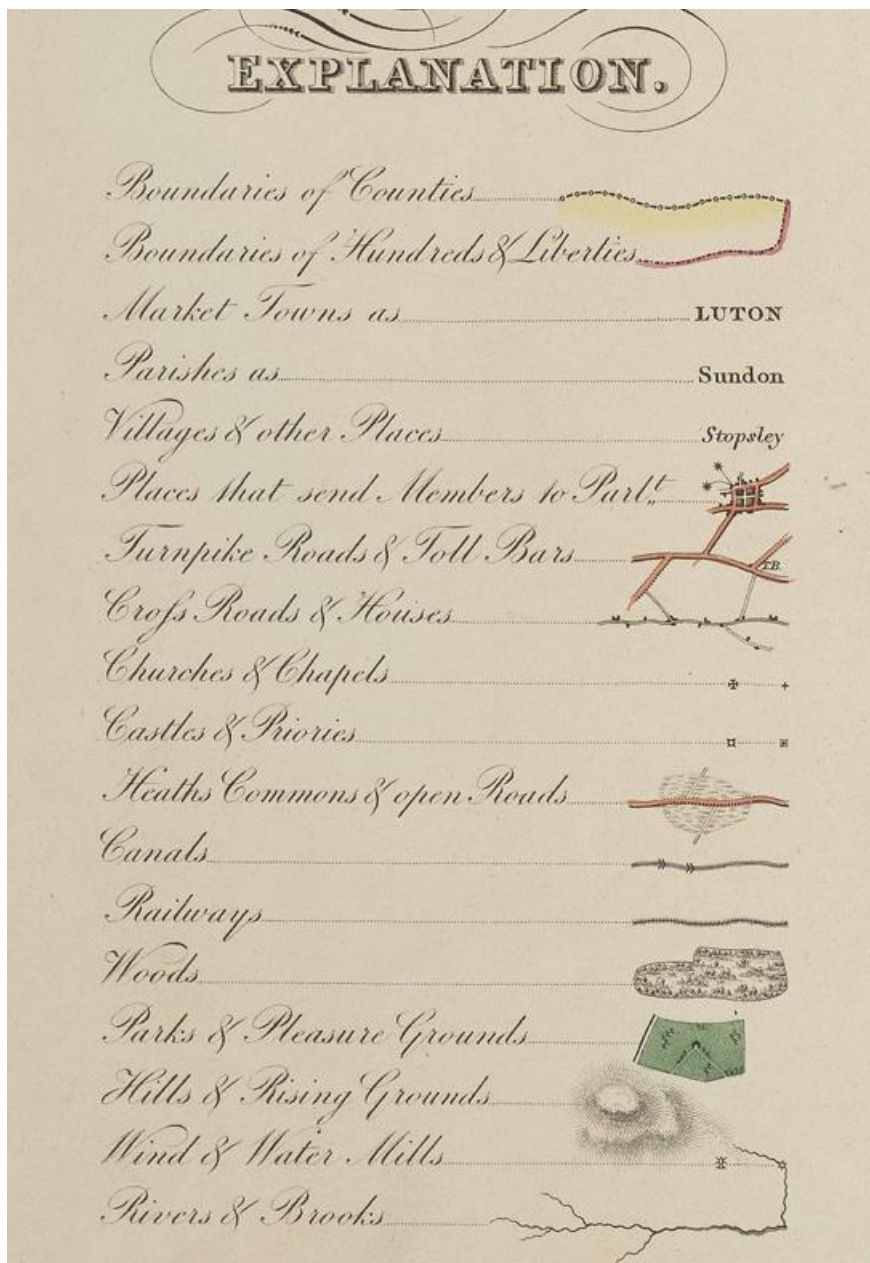 EXPLANATION.
Boundaries of Counties
Boundaries of Hundreds & Liberties
Market Towns as LUTON
Parishes as Sundon
Villages & other Places Stopsley
Places that send Members to Parl,,t
Turnpike Roads & Toll Bars T.B.
Croſs Roads & Houses
Churches & Chapels
Castles & Priories
Heaths Commons & open Roads
Canals
Railways
Woods
Parks & Pleasure Grounds
Hills & Rising Grounds
Wind & Water Mills
Rivers & Brooks